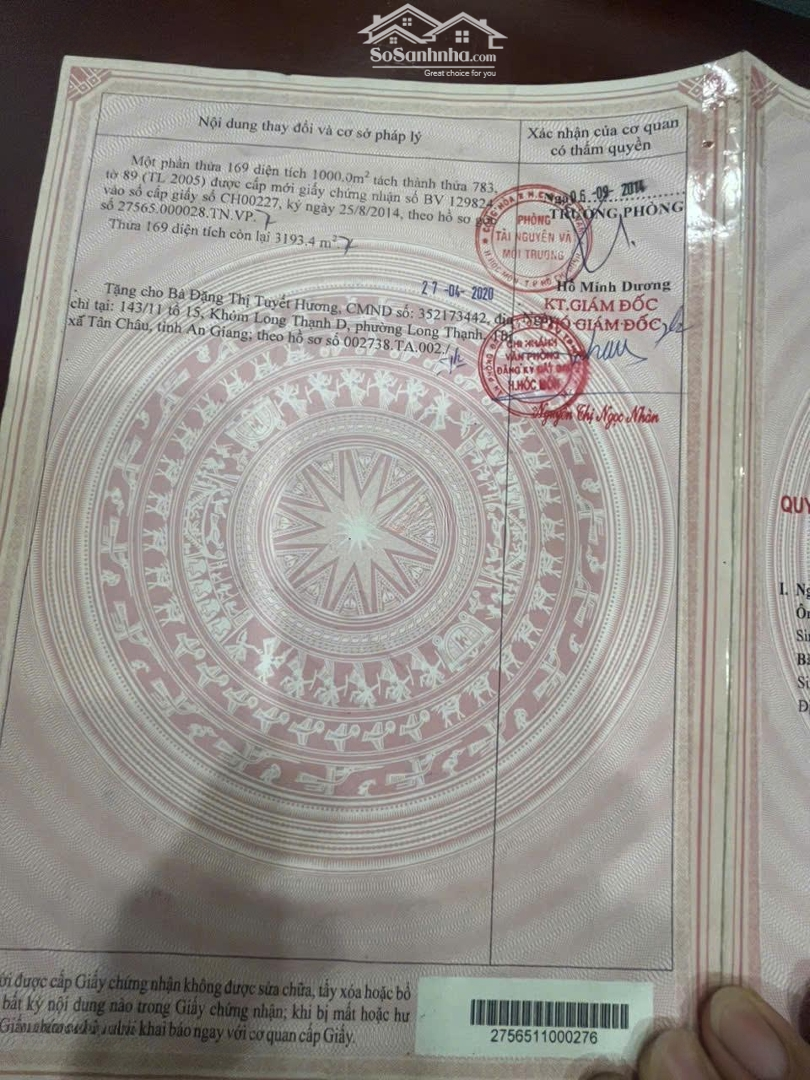 SoSanhnha.com
Great choice for you
Nội dung thay đổi và cơ sở pháp lý
Xác nhận của cơ quan
có thẩm quyền
Một phần thửa 169 diện tích 1000.0m² tách thành thửa 783,
tờ 89 (TL 2005) được cấp mới giấy chứng nhận số BV 129824,
vào số cấp giấy số CH00227, ký ngày 25/8/2014, theo hồ sơ
số 27565.000028.TN.VP.
Thửa 169 diện tích còn lại 3193,4 m².
06-09-2014
TRƯỞNG PHÒNG
PHÒNG
TÀI NGUYÊN VÀ
MÔI TRƯỜNG
Hồ Minh Dương
27-04-2020
Tặng cho Bà Đặng Thị Tuyết Hương, CMND số: 352173442, địa
chỉ tại: 143/11 tổ 15, Khóm Long Thạnh D, phường Long Thạnh,
xã Tân Châu, tỉnh An Giang; theo hồ sơ số 002738.TA.002./
KT.GIÁM ĐỐC
PHÓ GIÁM ĐỐC
CHI NHÁNH
VĂN PHÒNG
ĐĂNG KÝ ĐẤT ĐAI
H.HÓC MÔN
Nguyễn Thị Ngọc Nhàn
QUY
I. Ng
Ôn
Sin
Bà
Si
Đị
được cấp Giấy chứng nhận không được sửa chữa, tẩy xóa hoặc bổ
bất kỳ nội dung nào trong Giấy chứng nhận; khi bị mất hoặc hư
khai báo ngay với cơ quan cấp Giấy.
2756511000276